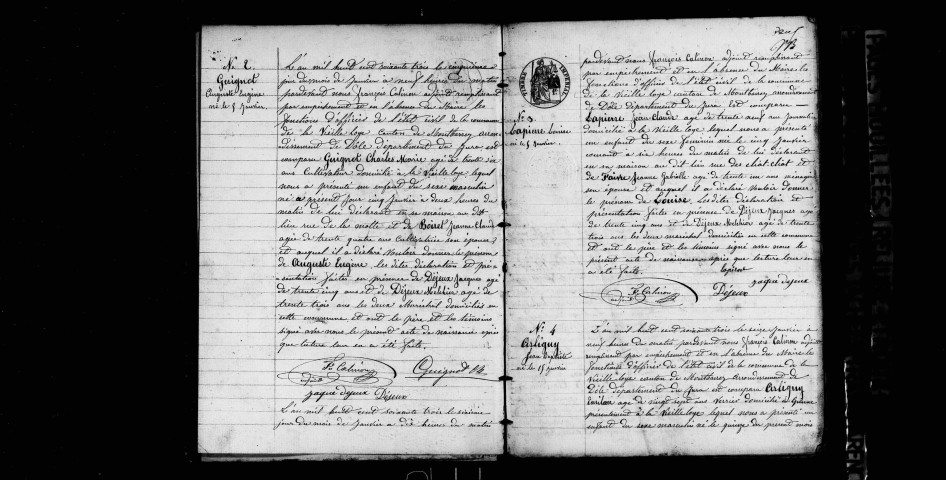 No 2.
Guignot
Auguste Eugène
né le 5 janvier.
L'an mil huit cent soixante trois le cinquième
jour du mois de janvier à neuf heures du matin
pardevant nous françois Calinon adjoint remplissant
par empêchement et en l'absence du Maire les
fonctions d'officier de l'état civil de la commune
de la Vieille loye canton de Montbarrey arron-
dissement de Dôle département du jura est
comparu Guignot Charles Marie agé de trente six
ans Cultivateur domicilié à la Vieille loye lequel
nous a présenté un enfant du sexe masculin
né à présent jour cinq janvier à deux heures du
matin de lui déclarant en sa maison au dit
lieu rue de la motte et de Boiret jeanne Claude
agée de trente quatre ans cultivatrice son épouse
et auquel il a déclaré vouloir donner le prénom
de Auguste Eugène, les dites déclaration et pré-
sentation faites en présence de Déjeux jacques agé
de trente cinq ans et de Déjeux Melchior agé de
trente trois ans les deux Maréchal domiciliés en
cette commune et ont le père et les témoins
signé avec nous le présent acte de naissance après
que lecture leur en a été faite.
Fs Calinon
adjoint
Guignot
jaque dejeux Déjeux
L'an mil huit cent soixante trois le sixième
jour du mois de janvier à dix heures du matin
neuf
No 3
Lapierre Louise
née le 5 janvier.
TIMBRE IMPERIAL
pardevant nous françois Calinon adjoint remplissant
par empêchement et en l'absence du Maire les
fonctions d'officier de l'état civil de la commune
de la Vieille loye canton de Montbarrey arrondissement
de Dôle département du jura est comparu
Lapierre jean Claude agé de trente neuf ans journalier
domicilié à la Vieille loye lequel nous a présenté
un enfant du sexe féminin né le cinq janvier
courant à six heures du matin de lui déclarant
en sa maison au dit lieu rue des et
de Faivre jeanne Gabrielle agé de trente un ans ménagère
son épouse et auquel il a déclaré vouloir donner
le prénom de Louise. Les dites déclaration et
présentation faites en présence de Déjeux jacques agé
de trente cinq ans et de Déjeux Melchior agé de trente
trois ans les deux maréchal domiciliés en cette commune
et ont le père et les témoins signé avec nous le
présent acte de naissance après que lecture leur en
a été faite.
lapierre
jaque dejeux
Fs Calinon
adjoint
Déjeux
No 4
Artiguy
Jean Baptiste
né le 15 janvier
L'an mil huit cent soixante trois le seize janvier à
neuf heures du matin pardevant nous françois Calinon adjoint
remplissant par empêchement et en l'absence du Maire les
fonctions d'officier de l'état civil de la commune de la
Vieille loye canton de Montbarrey arrondissement de
Dôle département du jura est comparu Artiguy
agé de vingt sept ans Verrier domicilié à
présentement à la Vieille loye lequel nous a présenté un
enfant du sexe masculin né le quinze du présent mois